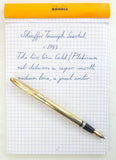 RHODIA
Sheaffer Triumph Imperial
c. 1995
The two tone Gold / Platinum
nib delivers a super-smooth
medium line, a great writer